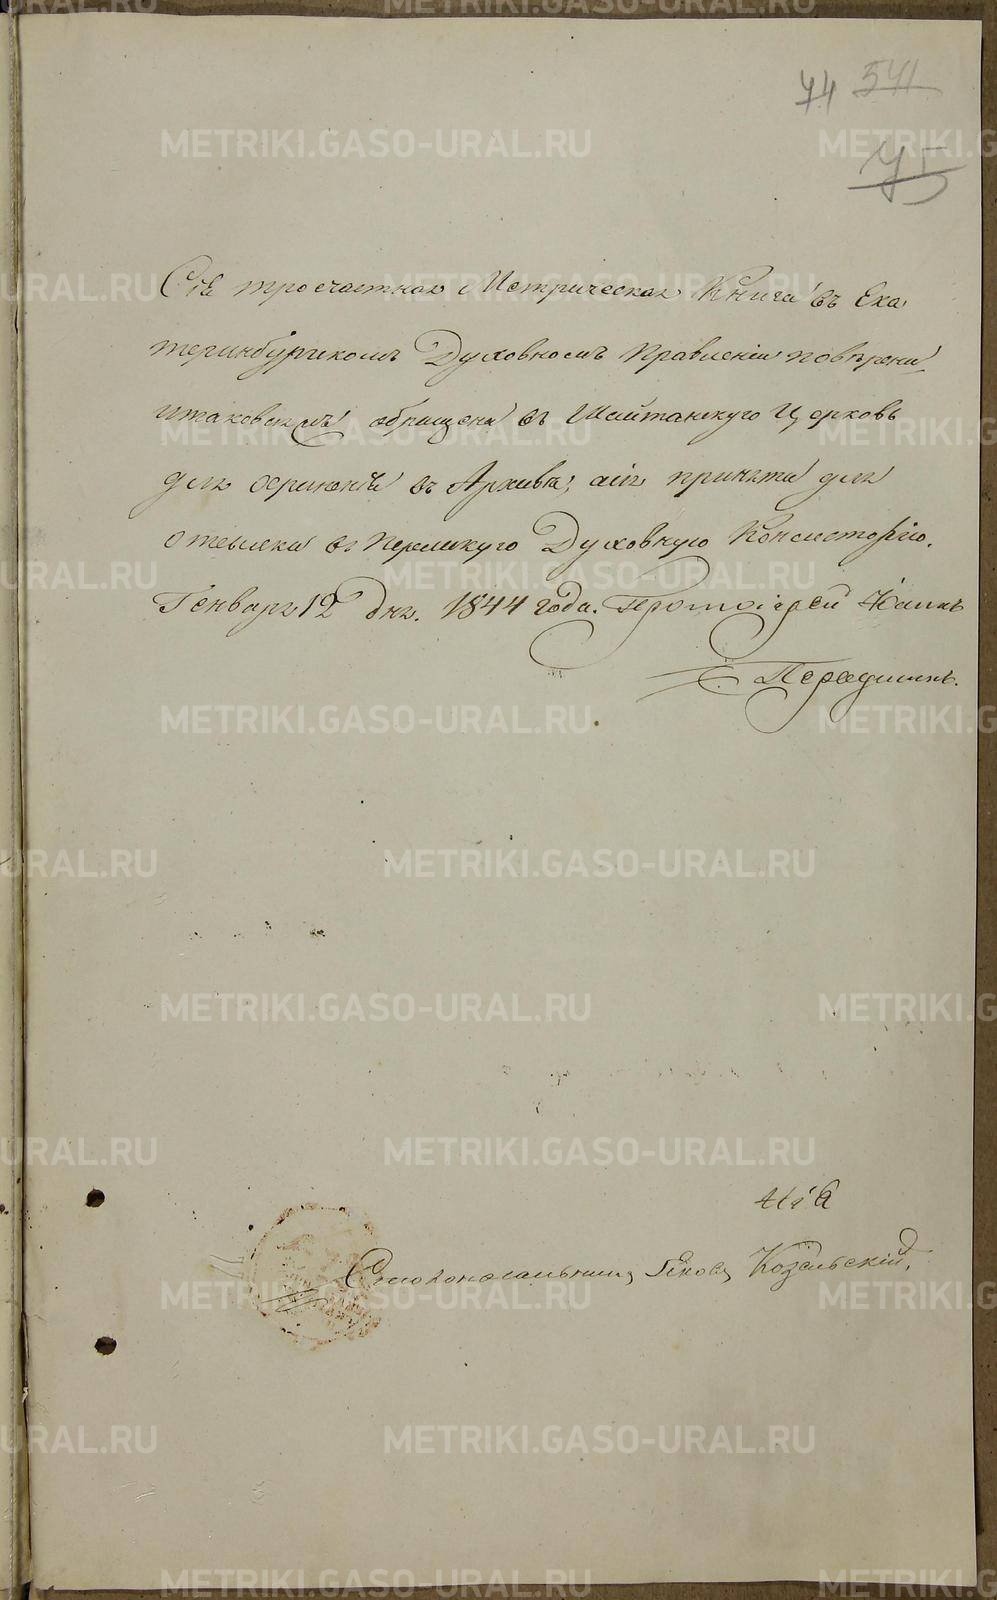 74 541
75
Сія трочастная Метрическая Книга въ Ека
теринбургскомъ Духовномъ Правленіи повѣрена
и таковая обращена въ Шайтанскую Церковь
для храненія въ Архивѣ, а сія принята для
отсылки въ Пермскую Духовную Консисторію.
Генваря 12 дня. 1844 года. Протоіерей Іоаннъ
Передминъ.
Столоначальникъ Козельскій.
METRIKI.GASO-URAL.RU